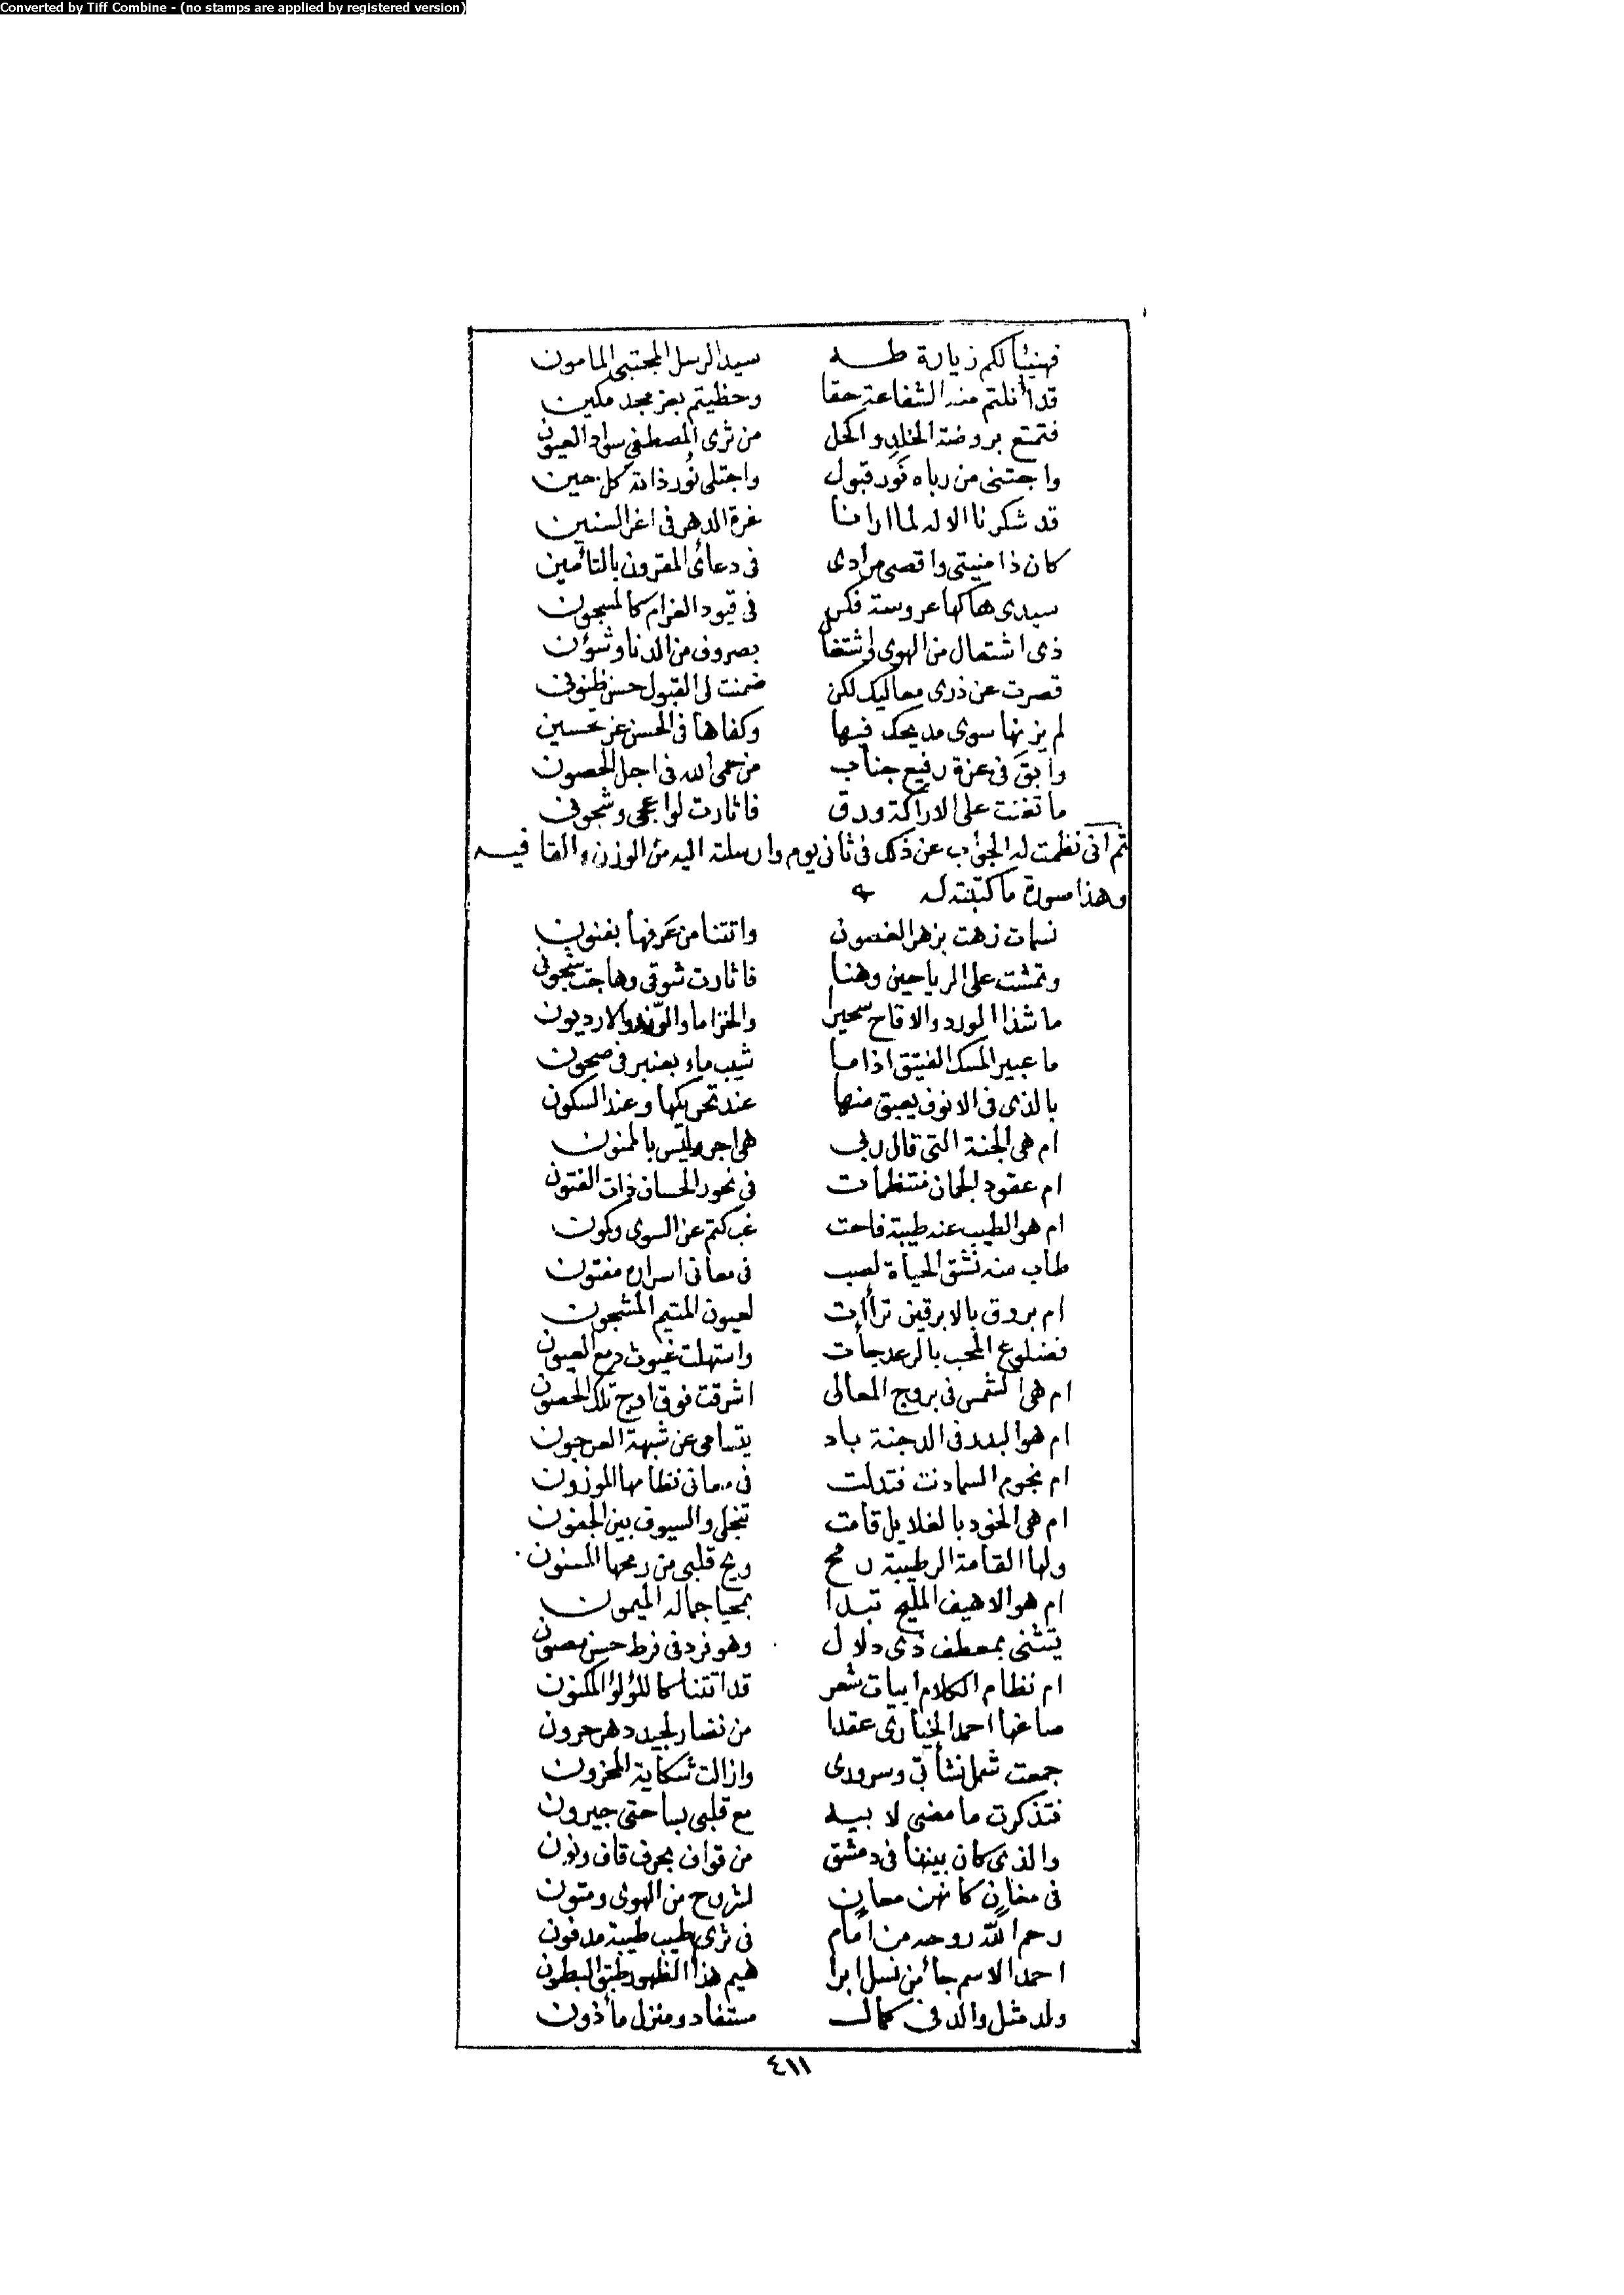 Converted by Tiff Combine - (no stamps are applied by registered version)
فهنيئا لكم زيارة طه سيد الرسل المجتبى المامون
قد أنلتم منه الشفاعة حقا وحظيتم بعز مجد مكين
فتمتع بروضة الخلد واكحل من ثرى المصطفى سواد العيون
واجتنى من رباه نَور قبول واجتلى نُور ذاته كل حين
قد شكرنا الاله لما ارانا غرة الدهر فى اغر السنين
كان ذا منيتى واقصى مرادى فى دعائى المقرون بالتأمين
سيدى هاكها عروسة فكر فى قيود الغرام كالمسجون
ذى اشتمال من الهوى واشتغال بصروف من الدنا وشؤن
قصرت عن ذرى معاليك لكن ضمنت لى القبول حسن ظنونى
لم يزنها سوى مديحك فيها وكفاها فى الحسن عن تحسين
وابق فى عزة رفيع جناب من حمى الله فى اجل الحصون
ما تغنت على الاراكة ورق فاثارت لواعجى وشجونى
ثم انى نظمت له الجواب عن ذلك فى ثانى يوم وارسلته اليه من الوزن والقافيه
وهذا صورة ما كتبته له
نسمات زهت بزهر الغصون واتتنا من عَرفها بفنون
وتمشت على الرياحين وهنا فاثارت شوقى وهاجت شجونى
ما شذا الورد والاقاح سحيرا والخزاما والرند والارديون
ما عبير المسك الفتيق اذا ما شيب ماء بعنبر فى صحون
بالذى فى الانوف يعبق منها عند تحريكها وعند السكون
ام هى الجنة التى قال ربى هى اجر وليس بالممنون
ام عقود الجمان منتظمات فى نحور الحسان ذات الفتون
ام هو الطيب عند طيبة فاحت غب كتم عن السوى وكمون
طاب منه نشق الحياة لصب فى معانى اسراره مفتون
ام بروق بالابرقين تراأت لعيون المتيم المشجون
فضلوع المحب بالرعد جأت واستهلت غيوث دمع العيون
ام هى الشمس فى بروج المعالى اشرقت فوق اوج تلك الحصون
ام هو البدر فى الدجنة باد يتسامى عن شبهة العرجون
ام نجوم السما دنت فتدلت فى معانى نظامها الموزون
ام هى الخود بالغلايل قامت تنجلى والسيوف بين الجفون
ولها القامة الرطيبة رمح ويح قلبى من رمحها المسنون
ام هو الاهيف المليح تبدا بمحيا جماله الميمون
يتثنى بمعطف ذى دلال وهو فرد فى فرط حسن مصون
ام نظام الكلام ابيات شعر قد اتتنا كاللؤلؤ المكنون
صاغها احمد الخيارى عقدا من نضار لجيد دهر حرون
جمعت شمل نشأتى وسرورى وازالت شكاية المحزون
فتذكرت ما مضى لابيه مع قلبى بساحتى جيرون
والذى كان بيننا فى دمشق من قواف بحرف قاف ونون
فى مغان كانهن معان لشروح من الهوى ومتون
رحم الله روحه من امام فى ثرى طيب طيبة مدفون
احمد الاسم جا من نسل ابرا هيم هذا الظهور طبق البطون
ولد مثل والد فى كمال مستفاد ومنزل مأذون
٤١١